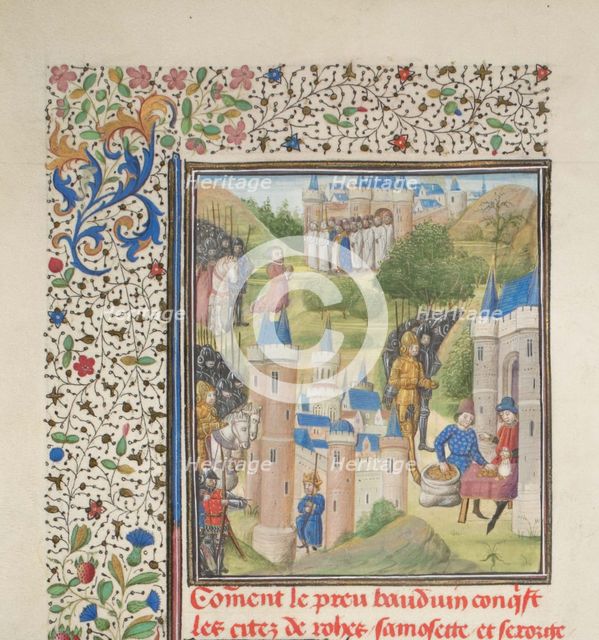 Heritage Heritage
Heritage Heritage
©
Heritage Heritage
Heritage Heritage
Coment le preu bauduin conqist
les citez de rohes samosette et sororge